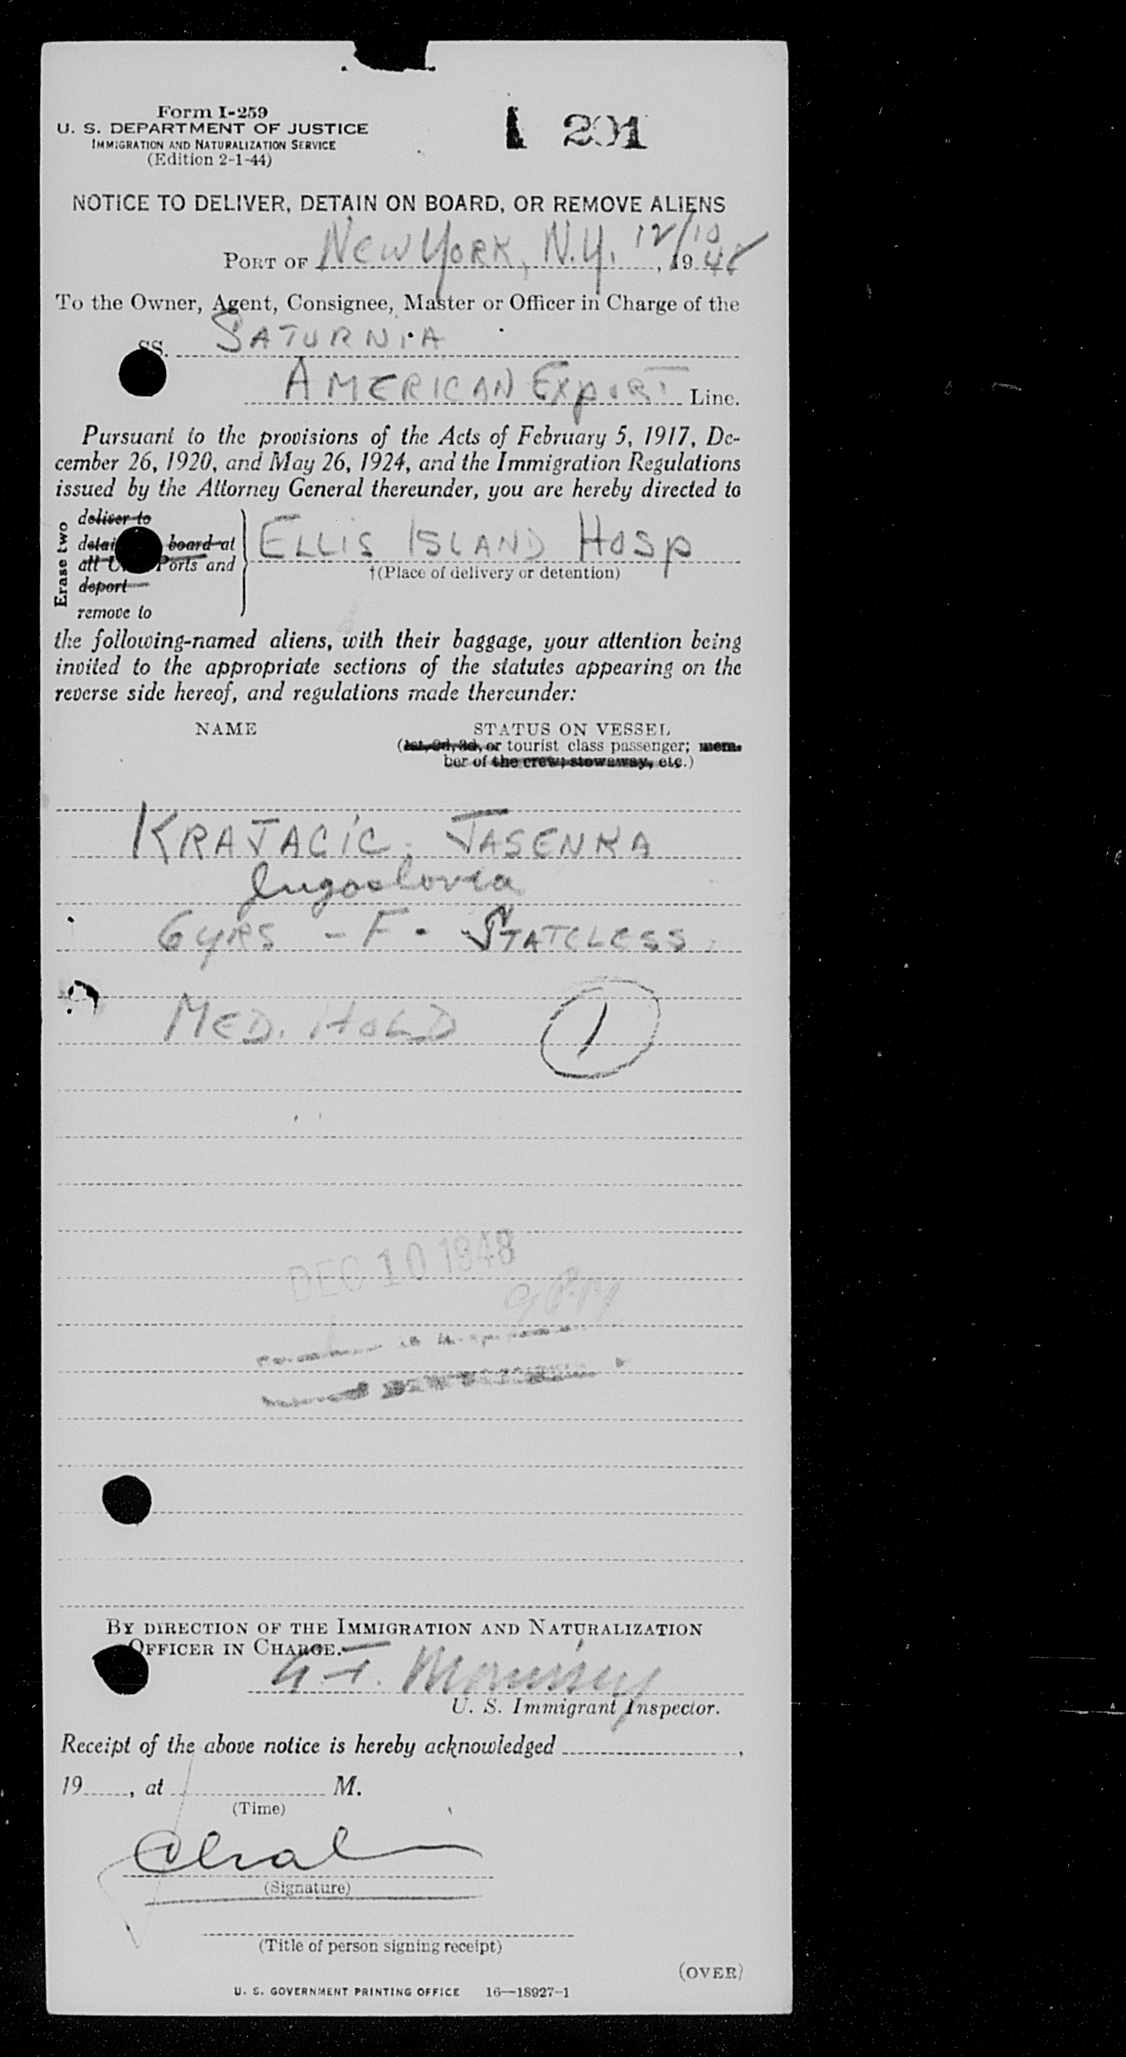 Form I-259
U. S. DEPARTMENT OF JUSTICE
IMMIGRATION AND NATURALIZATION SERVICE
(Edition 2-1-44)
201
NOTICE TO DELIVER, DETAIN ON BOARD, OR REMOVE ALIENS
PORT OF NEW YORK, N.Y. 12/10, 1948
To the Owner, Agent, Consignee, Master or Officer in Charge of the
SS. SATURNIA
AMERICAN EXPORT Line.
Pursuant to the provisions of the Acts of February 5, 1917, De-
cember 26, 1920, and May 26, 1924, and the Immigration Regulations
issued by the Attorney General thereunder, you are hereby directed to
Erase two
deliver to
detain board at
all U. Ports and
deport
remove to
ELLIS ISLAND HOSP
†(Place of delivery or detention)
the following-named aliens, with their baggage, your attention being
invited to the appropriate sections of the statutes appearing on the
reverse side hereof, and regulations made thereunder:
NAME STATUS ON VESSEL
(1st, 2d, 3d, or tourist class passenger; mem-
ber of the crew; stowaway, etc.)
KRAJACIC, JASENKA
Jugoslovia
6 YRS - F - STATELESS
MED. HOLD 1
DEC 10 1948
9 PM
BY DIRECTION OF THE IMMIGRATION AND NATURALIZATION
OFFICER IN CHARGE.
U. S. Immigrant Inspector.
Receipt of the above notice is hereby acknowledged ,
19 , at M.
(Time)
(Signature)
(Title of person signing receipt)
(OVER)
U. S. GOVERNMENT PRINTING OFFICE 16—18927-1